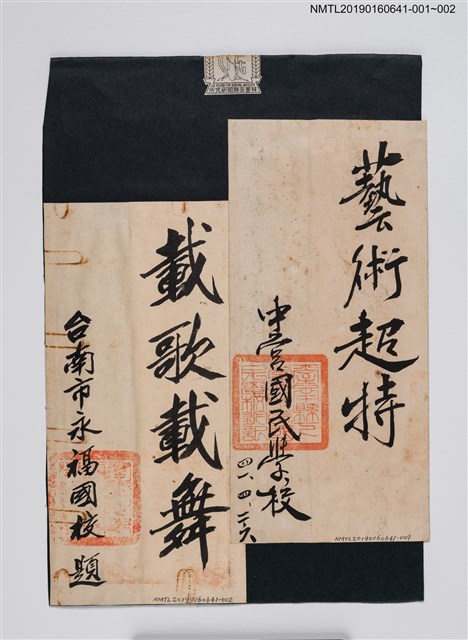 NMTL20190160641-001~002
藝術超特
中营國民學校
四六、四、二六
NMTL20190160641-001
載歌載舞
台南市永福國校 題
NMTL20190160641-002